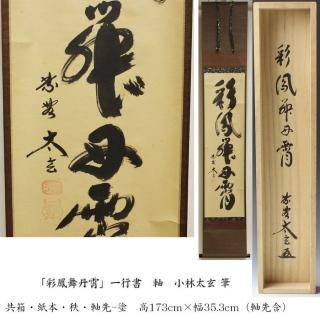 舞丹霄
紫野 太玄
彩鳳舞丹霄
紫野 太玄
彩鳳舞丹霄
紫野 太玄
「彩鳳舞丹霄」一行書 軸 小林太玄 筆
共箱・紙本・秩・軸先−塗 高173cm×幅35.3cm（軸先含）